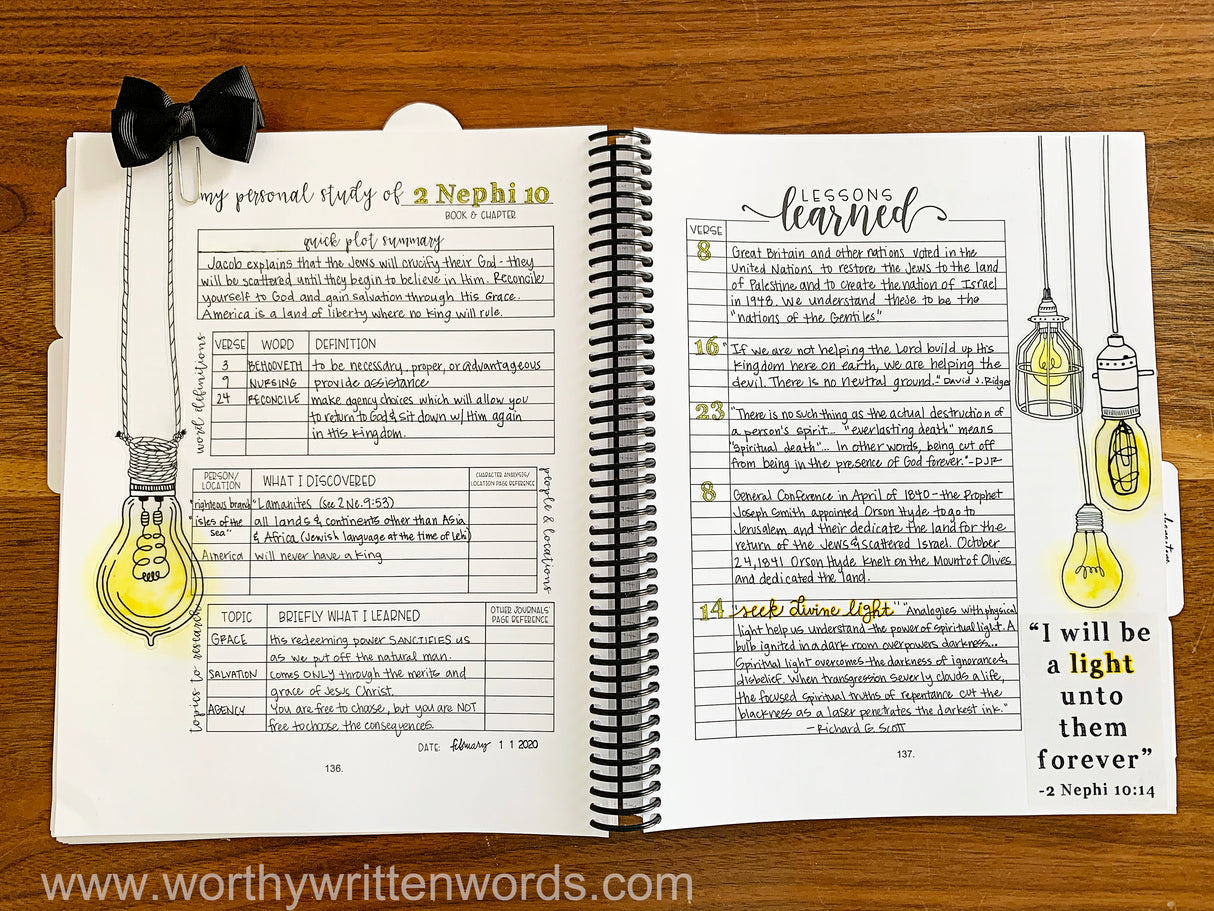 my personal study of 2 Nephi 10
BOOK & CHAPTER
quick plot summary
Jacob explains that the Jews will crucify their God - they
will be scattered until they begin to believe in Him. Reconcile
yourself to God and gain salvation through His Grace.
America is a land of liberty where no king will rule.
word definitions
VERSE WORD DEFINITION
3 BEHOOVETH to be necessary, proper, or advantageous
9 NURSING provide assistance
24 RECONCILE make agency choices which will allow you
to return to God & sit down w/ Him again
in His Kingdom.
people & locations
PERSON/ LOCATION WHAT I DISCOVERED CHARACTER ANALYSIS/ LOCATION PAGE REFERENCE
"righteous branch" Lamanites (see 2 Ne. 9:53)
"isles of the sea" all lands & continents other than Asia
& Africa (Jewish language at the time of Lehi)
America will never have a king
topics to research
TOPIC BRIEFLY WHAT I LEARNED OTHER JOURNALS' PAGE REFERENCE
GRACE His redeeming power SANCTIFIES us
as we put off the natural man.
SALVATION comes ONLY through the merits and
grace of Jesus Christ.
AGENCY You are free to choose, but you are NOT
free to choose the consequences.
DATE: february 11 2020
136.
LESSONS
learned
VERSE
8 Great Britain and other nations voted in the
United Nations to restore the Jews to the land
of Palestine and to create the nation of Israel
in 1948. We understand these to be the
"nations of the Gentiles."
16 "If we are not helping the Lord build up His
Kingdom here on earth, we are helping the
devil. There is no neutral ground." David J. Ridge
23 "There is no such thing as the actual destruction of
a person's spirit... "everlasting death" means
"spiritual death"... In other words, being cut off
from being in the presence of God forever." -DJR
8 General Conference in April of 1840 - the Prophet
Joseph Smith appointed Orson Hyde to go to
Jerusalem and their dedicate the land for the
return of the Jews & scattered Israel. October
24, 1841 Orson Hyde knelt on the Mount of Olives
and dedicated the land.
14 "seek divine light" "Analogies with physical
light help us understand the power of spiritual light. A
bulb ignited in a dark room overpowers darkness...
Spiritual light overcomes the darkness of ignorances,
disbelief. When transgression severly clouds a life,
the focused spiritual truths of repentance cut the
blackness as a laser penetrates the darkest ink."
-Richard G. Scott
137.
"I will be
a light
unto
them
forever"
-2 Nephi 10:14
www.worthywrittenwords.com